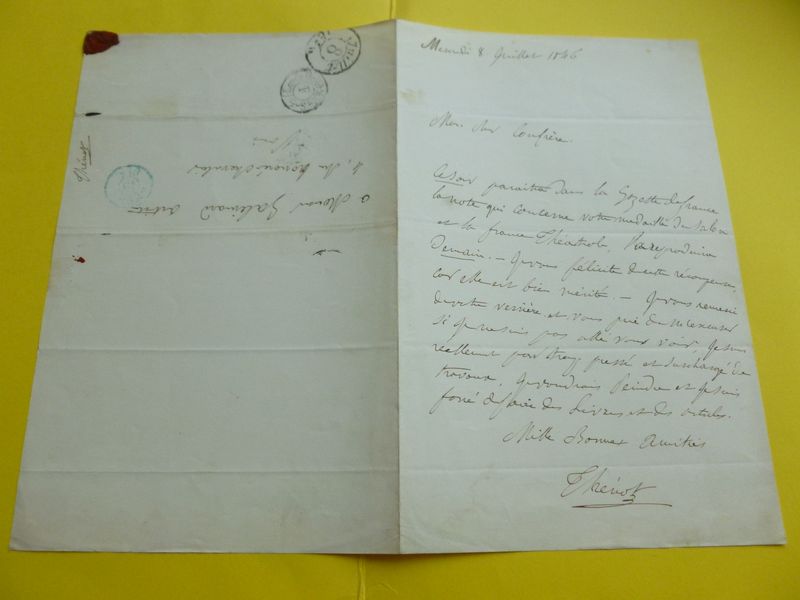 Mercredi 8 Juillet 1846
Mon cher Confrère.
Ce soir paraitra dans la Gazette de france
la note qui concerne votre medaille du Salon
et la france Théâtrale, la reproduira
Demain. — Je vous félicite de cette récompense,
car elle est bien mérité. — Je vous remercie
de votre verrière et vous prie de m'excuser
si je ne suis pas allé vous voir, Je suis
reellement par trop pressé et surchargé de
travaux, Je voudrais Peindre et je suis
forcé de faire des Livres et des articles.
Mille Bonnes Amitiés
Thénot
a Monsieur Galimard artiste
Thénot